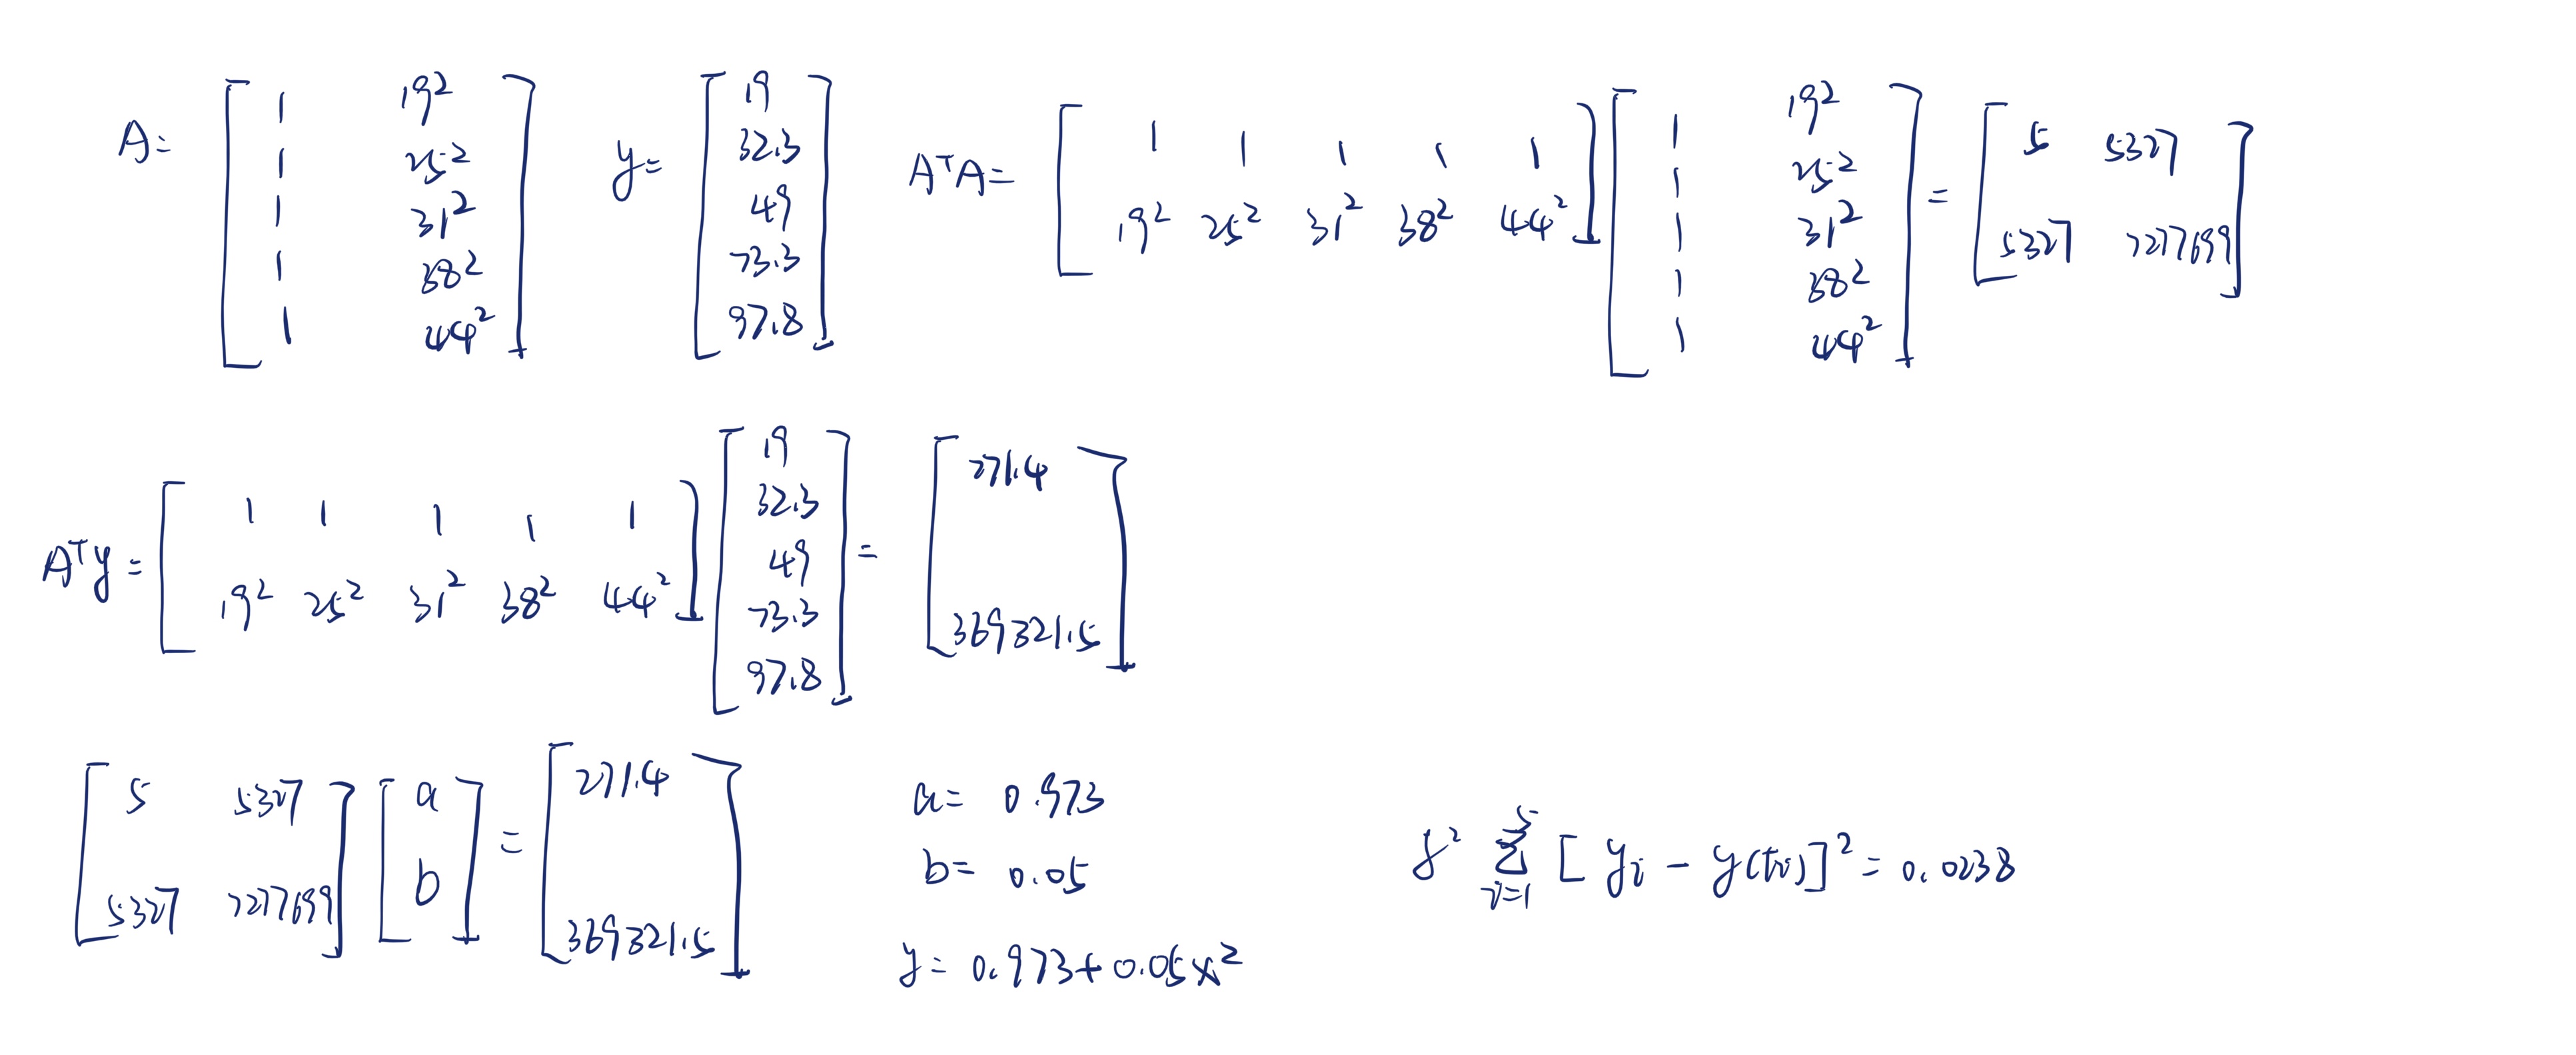 A = [ 1 19² ; 1 25² ; 1 31² ; 1 38² ; 1 44² ] y = [ 19 ; 32.3 ; 49 ; 73.3 ; 97.8 ] AᵀA = [ 1 1 1 1 1 ; 19² 25² 31² 38² 44² ] [ 1 19² ; 1 25² ; 1 31² ; 1 38² ; 1 44² ] = [ 5 5327 ; 5327 7277699 ]
Aᵀy = [ 1 1 1 1 1 ; 19² 25² 31² 38² 44² ] [ 19 ; 32.3 ; 49 ; 73.3 ; 97.8 ] = [ 271.4 ; 369321.5 ]
[ 5 5327 ; 5327 7277699 ] [ a ; b ] = [ 271.4 ; 369321.5 ]
a = 0.973
b = 0.05
y = 0.973 + 0.05x²
δ² ∑_{i=1}^{5} [ yᵢ - y(xᵢ) ]² = 0.0238